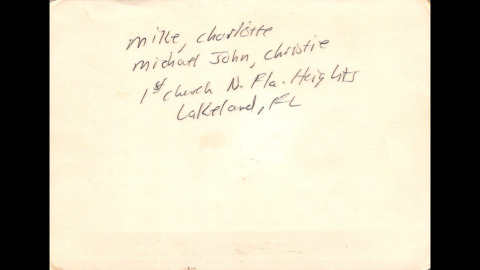 Mike, Charlotte
Michael John, Christie
1st Church N. Fla. Heights
Lakeland, FL